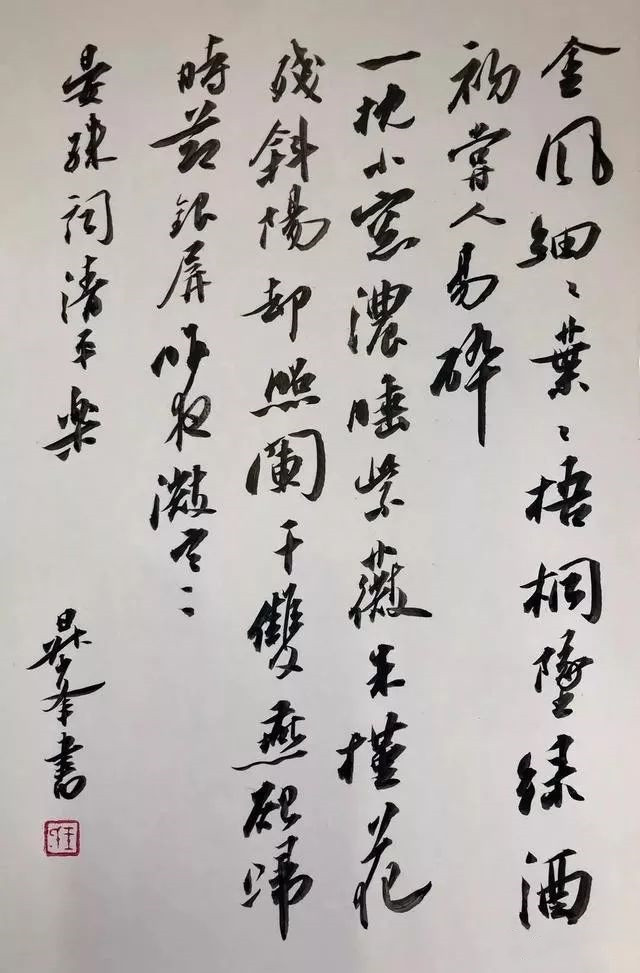 金風細〻葉〻梧桐墜緑酒
初嘗人易碎
一枕小窓濃睡紫薇朱槿花
殘斜陽却照闌干雙燕欲歸
時節銀屏昨夜微寒
晏殊詞清平楽
書